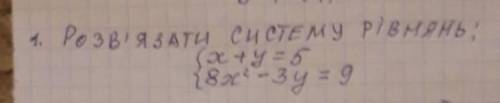 1. РОЗВ'ЯЗАТИ СИСТЕМУ РІВНЯНЬ:
{x + y = 5
{8x² - 3y = 9